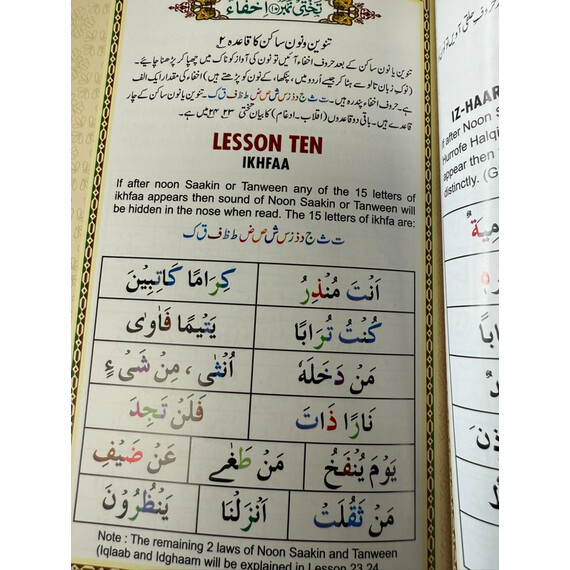 تختی نمبر (۱۰) اخفاء
تنوین و نون ساکن کا قاعدہ ۲
تنوین یا نون ساکن کے بعد حروف اخفاء آئیں تو نون کی آواز کو ناک میں چھپا کر پڑھنا چاہئے۔
(نوک زبان تالو سے ہٹا کر جیسے اُردو میں، پنکھا، کے نون کو پڑھتے ہیں) اخفاء کی مقدار ایک الف
ہے۔ حروف اخفاء پندرہ ہیں۔ ت ث ج د ذ ز س ش ص ض ط ظ ف ق ک۔ تنوین یا نون ساکن کے چار
قاعدے ہیں۔ باقی دو قاعدوں (اقلاب۔ ادغام) کا بیان تختی ۲۳، ۲۴ میں ہے۔
LESSON TEN
IKHFAA
If after noon Saakin or Tanween any of the 15 letters of
ikhfaa appears then sound of Noon Saakin or Tanween will
be hidden in the nose when read. The 15 letters of ikhfa are:
ت ث ج د ذ ز س ش ص ض ط ظ ف ق ک
اَنْتَ مُنْذِرُ كِرَامًا كَاتِبِيْنَ
كُنْتُ تُرَابًا يَتِيْمًا فَاٰوٰى
مَنْ دَخَلَهٗ اُنْثٰى ، مِنْ شَىْءٍ
نَارًا ذَاتَ فَلَنْ تَجِدَ
يَوْمَ يُنْفَخُ مَنْ طَغٰے عَنْ ضَيْفِ
مَنْ ثَقُلَتْ اَنْزَلْنَا يَنْظُرُوْنَ
Note : The remaining 2 laws of Noon Saakin and Tanween
(Iqlaab and Idghaam will be explained in Lesson 23,24
IZ-HAAR
If after Noon S
Hurrofe Halqi
appear then
distinctly. (G